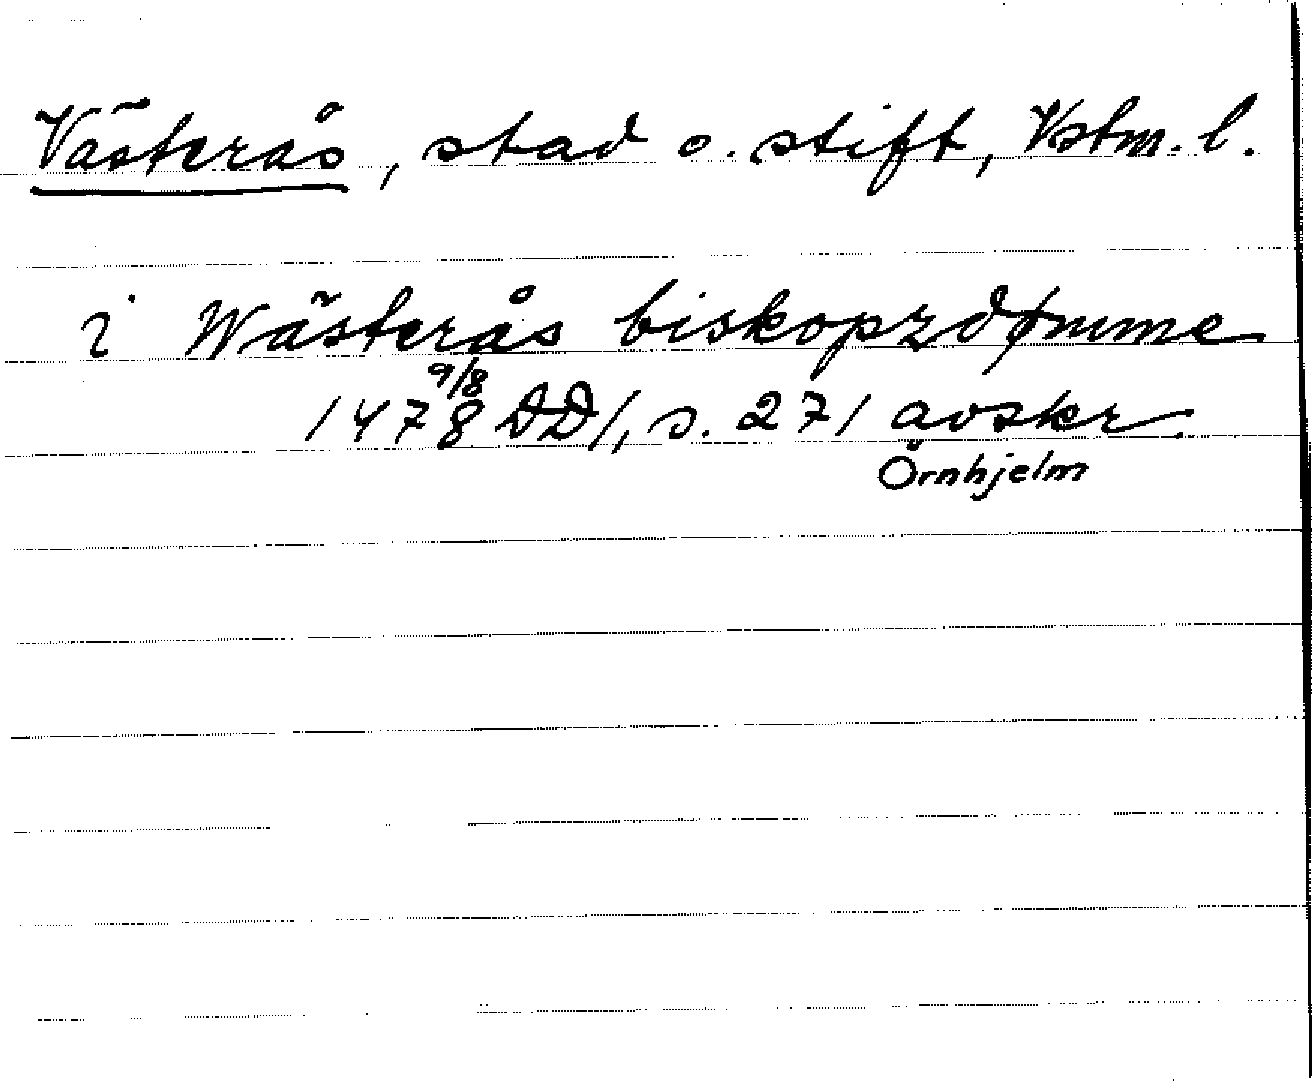 Västerås, stad o. stift, Vstm. l.
i Wästerås biskopzdømme
1478 9/8 DD1, s. 271 avskr.
Örnhjelm